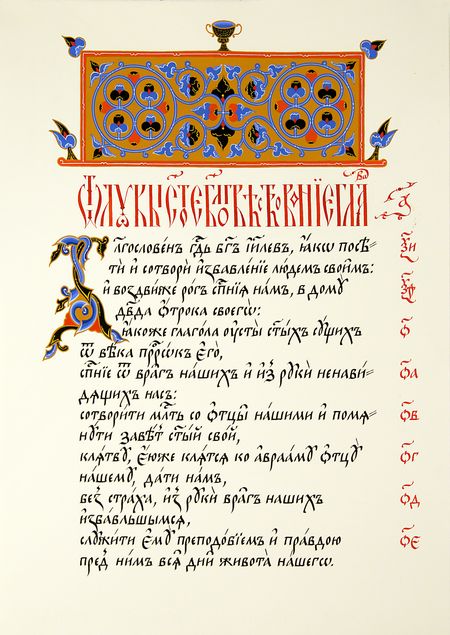 Ѿ лꙋки ст҃ое бл҃говѣствованїе глава̀ а҃
Бл҃гослове́нъ гдⷭ҇ь бг҃ъ і҆и҃левъ, ꙗ҆́кѡ посѣ= ѯ҃и
тѝ и҆ сотворѝ и҆збавле́нїе лю́демъ свои̑мъ:
и҆ воздви́же ро́гъ сп҃нїѧ на́мъ, в домꙋ̀ ѯ҃ѳ
дв҃да ѻ҆́трока своегѡ̀:
ꙗ҆́коже глаго́ла оу҆сты̀ ст҃ы́хъ сꙋ́щихъ о҃
ѿ вѣ́ка прⷪ҇рѡ́къ є҆гѡ̀,
сп҃нїе ѿ вра̑гъ на́шихъ и҆ и҆з рꙋкѝ ненави́= о҃а
дѧщихъ на́съ:
сотвори́ти млⷭ҇ть со ѻ҆тцы̑ на́шими и҆ помѧ= о҃в
нꙋ́ти завѣ́тъ ст҃ы́й сво́й,
клѧ́твꙋ, є҆́юже клѧ́тсѧ ко а҆враа́мꙋ ѻ҆тцꙋ̀ о҃г
на́шемꙋ, да́ти на́мъ,
без стра́ха, и҆з рꙋкѝ вра̑гъ на́шихъ о҃д
и҆зба́вльшымсѧ,
слꙋжи́ти є҆мꙋ̀ преподо́бїемъ и҆ пра́вдою о҃е
пред ни́мъ всѧ̑ дни̑ живота̀ на́шегѡ.